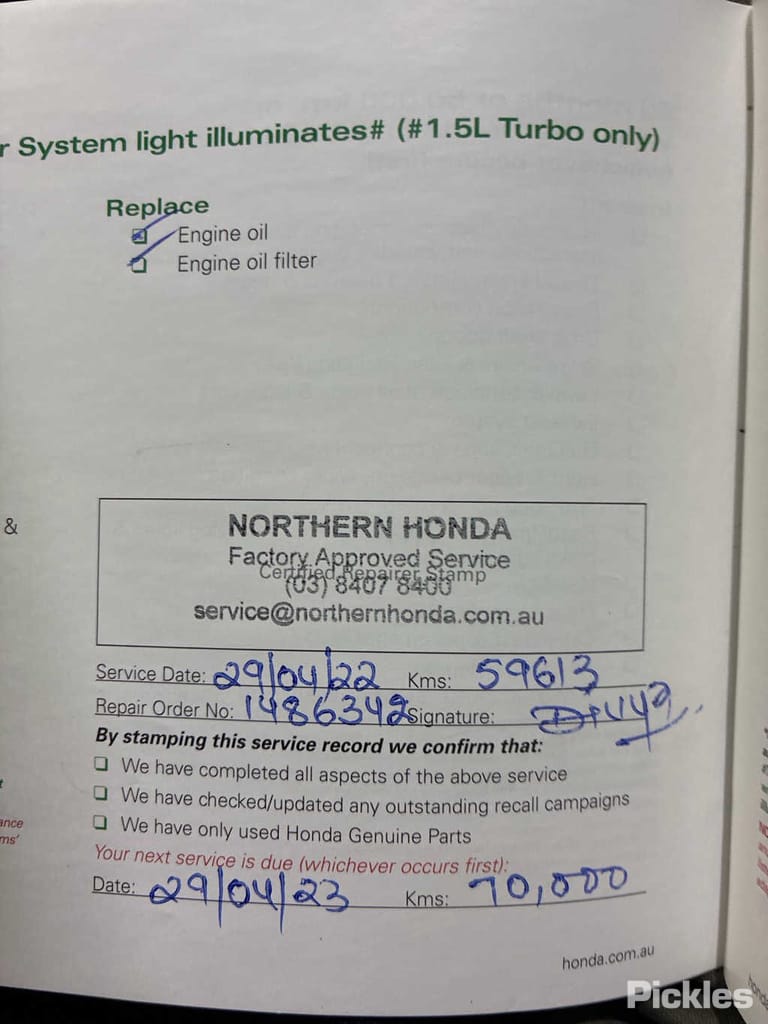 r System light illuminates# (#1.5L Turbo only)
Replace
Engine oil
Engine oil filter
&
NORTHERN HONDA
Factory Approved Service
Certified Repairer Stamp
(03) 8407 8400
service@northernhonda.com.au
Service Date: 29/04/22 Kms: 59613
Repair Order No: 1486342 Signature:
By stamping this service record we confirm that:
We have completed all aspects of the above service
We have checked/updated any outstanding recall campaigns
ance
ms'
We have only used Honda Genuine Parts
Your next service is due (whichever occurs first):
Date: 29/04/23 Kms: 70,000
honda.com.au
Pickles